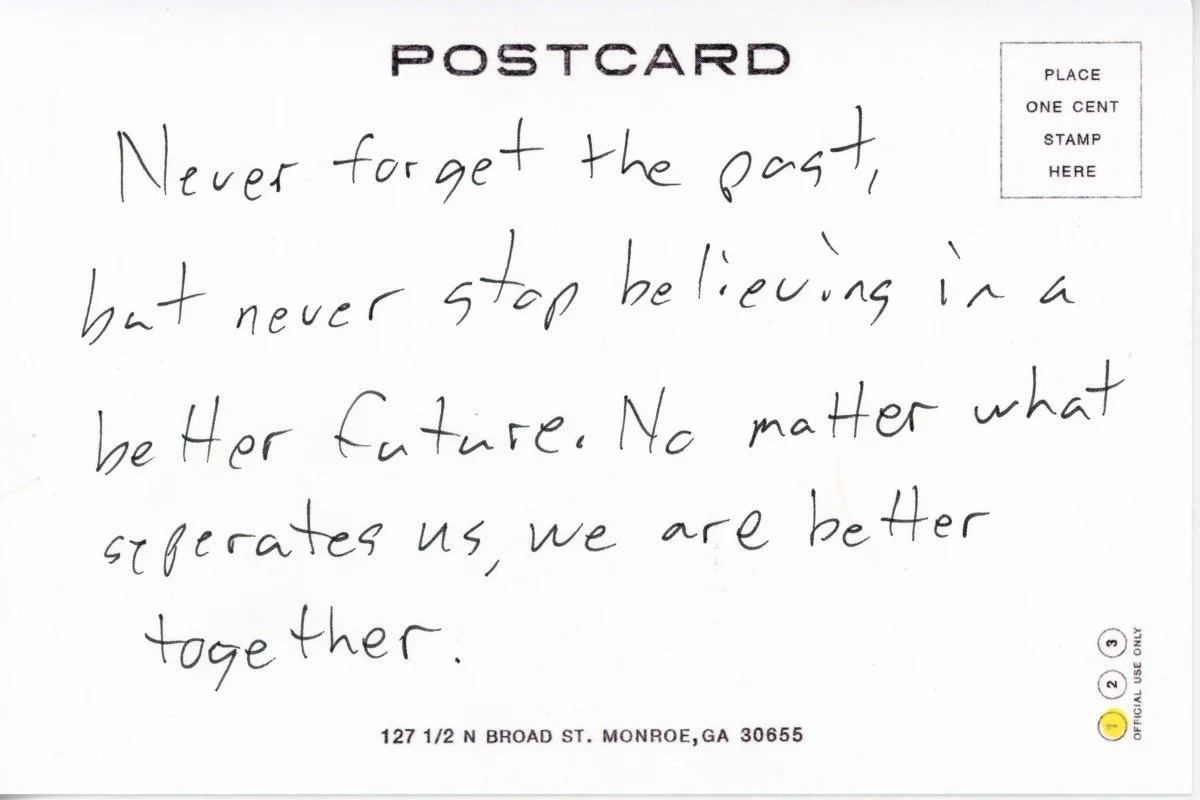 POSTCARD
PLACE
ONE CENT
STAMP
HERE
Never forget the past,
but never stop believing in a
better future. No matter what
seperates us, we are better
together.
127 1/2 N BROAD ST. MONROE, GA 30655
1 2 3
OFFICIAL USE ONLY